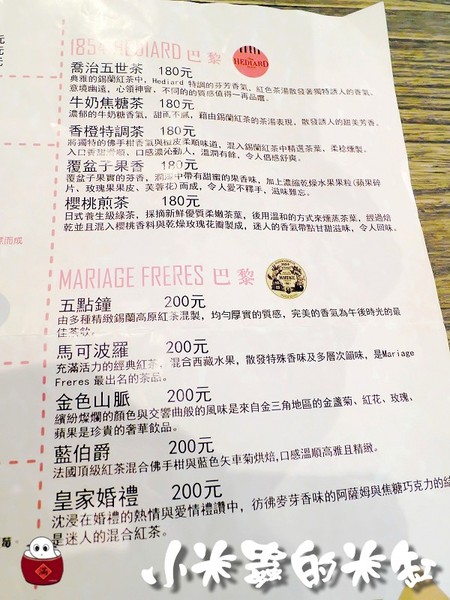 元
元
1854 HEDIARD 巴黎
HEDIARD
喬治五世茶 180元
典雅的錫蘭紅茶中，Hediard 特調的芬芳香氣，紅色茶湯散發著獨特誘人的香氣。
意境幽遠，心領神會，不同的的質感值得一再品嚐。
牛奶焦糖茶 180元
濃郁的牛奶糖香氣，甜而不膩，藉由錫蘭紅茶的茶湯表現，散發誘人的甜美芳香。
香橙特調茶 180元
將獨特的佛手柑香氣與橙皮柔順味道，混入錫蘭紅茶中精選茶葉，柔捻煙製。
入口香甜滑順，口感濃沁動人，溫潤有餘，令人倍感舒爽。
覆盆子果香 180元
覆盆子果實的芬香，潤澤中帶有甜蜜的果香味，加上濃縮乾燥水果果粒(蘋果碎
片、玫瑰果果皮、芙蓉花)而成，令人愛不釋手，滋味難忘。
櫻桃煎茶 180元
日式養生級綠茶，採摘新鮮優質柔嫩茶葉，後用溫和的方式來燻蒸茶葉，經過焙
乾並且混入櫻桃香料與乾燥玫瑰花瓣製成，迷人的香氣帶點甘甜滋味，令人回味。
而成
MARIAGE FRERES 巴黎
五點鐘 200元
由多種精緻錫蘭高原紅茶混製，均勻厚實的質感，完美的香氣為午後時光的最
佳茶飲。
馬可波羅 200元
充滿活力的經典紅茶，混合西藏水果，散發特殊香味及多層次韻味，是Mariage
Freres 最出名的茶品。
金色山脈 200元
繽紛燦爛的顏色與交響曲般的風味是來自金三角地區的金盞菊、紅花、玫瑰、
蘋果是珍貴的奢華飲品。
藍伯爵 200元
法國頂級紅茶混合佛手柑與藍色矢車菊烘焙,口感溫順高雅且精緻。
皇家婚禮 200元
沈浸在婚禮的熱情與愛情禮讚中，彷彿麥芽香味的阿薩姆與焦糖巧克力的
是迷人的混合紅茶。
小米蟲的米缸